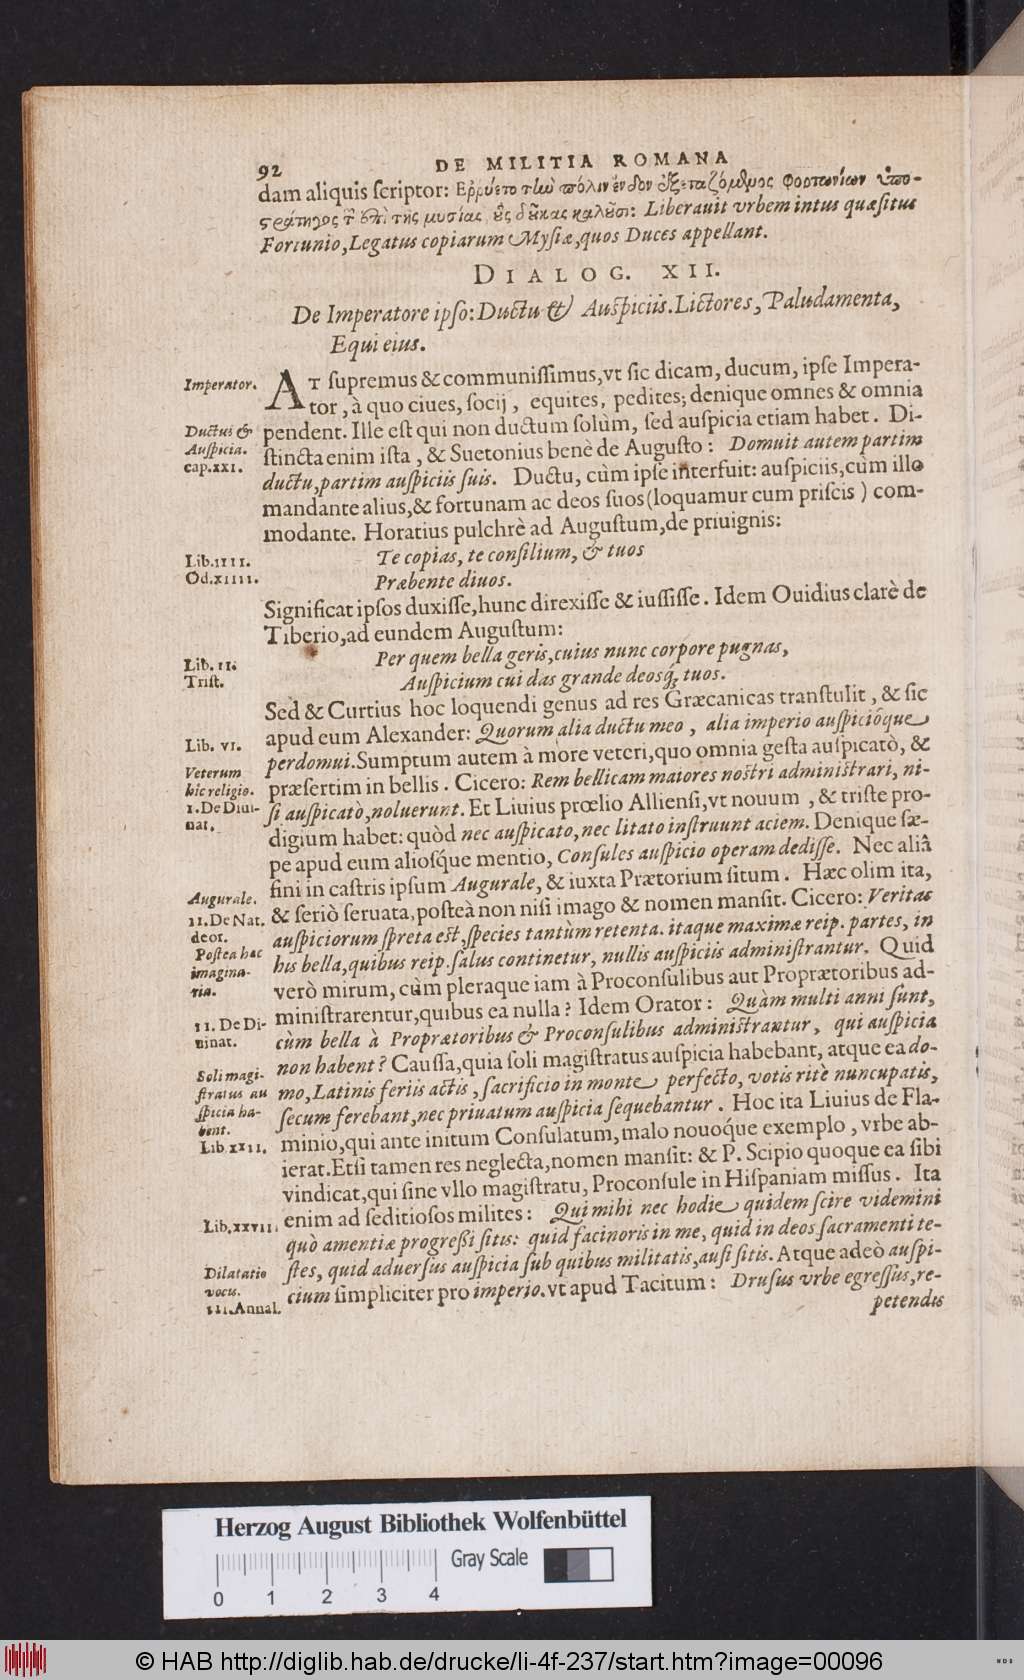 92 DE MILITIA ROMANA
dam aliquis scriptor: Ερρύετο τὴν πόλιν ἔνδον ἐξεταζόμενος φορτωνίων ὑπο-
στράτηγος τῶν ἐπὶ τῆς μυσίας, οὓς δοῦκας καλοῦσι: Liberauit vrbem intus quæsitus
Fortunio, Legatus copiarum Mysiæ, quos Duces appellant.
DIALOG. XII.
De Imperatore ipso: Ductu & Auspiciis. Lictores, Paludamenta,
Equi eius.
Imperator.
AT supremus & communissimus, vt sic dicam, ducum, ipse Impera-
tor, à quo ciues, socij, equites, pedites; denique omnes & omnia
Ductus &
pendent. Ille est qui non ductum solùm, sed auspicia etiam habet. Di-
Auspicia.
stincta enim ista, & Suetonius benè de Augusto: Domuit autem partim
cap.xxi.
ductu, partim auspiciis suis. Ductu, cùm ipse interfuit: auspiciis, cùm illo
mandante alius, & fortunam ac deos suos (loquamur cum priscis) com-
modante. Horatius pulchrè ad Augustum, de priuignis:
Lib.IIII.
Te copias, te consilium, & tuos
Od.XIIII.
Præbente diuos.
Significat ipsos duxisse, hunc direxisse & iussisse. Idem Ouidius clarè de
Tiberio, ad eundem Augustum:
Lib. II.
Per quem bella geris, cuius nunc corpore pugnas,
Trist.
Auspicium cui das grande deosq́; tuos.
Sed & Curtius hoc loquendi genus ad res Græcanicas transtulit, & sic
Lib. VI.
apud eum Alexander: Quorum alia ductu meo, alia imperio auspicióque
Veterum
perdomui. Sumptum autem à more veteri, quo omnia gesta auspicatò, &
hic religio.
præsertim in bellis. Cicero: Rem bellicam maiores nostri administrari, ni-
I. De Diui-
si auspicatò, noluerunt. Et Liuius prœlio Alliensi, vt nouum, & triste pro-
nat.
digium habet: quòd nec auspicato, nec litato instruunt aciem. Denique sæ-
pe apud eum aliosque mentio, Consules auspicio operam dedisse. Nec aliâ
Augurale.
fini in castris ipsum Augurale, & iuxta Prætorium situm. Hæc olim ita,
II. De Nat.
& seriò seruata, posteà non nisi imago & nomen mansit. Cicero: Veritas
deor.
auspiciorum spreta est, species tantùm retenta. itaque maximæ reip. partes, in
Postea hæc
his bella, quibus reip. salus continetur, nullis auspiciis administrantur. Quid
imagina-
ria.
verò mirum, cùm pleraque iam à Proconsulibus aut Proprætoribus ad-
II. De Di-
ministrarentur, quibus ea nulla? Idem Orator: Quàm multi anni sunt,
uinat.
cùm bella à Propræetoribus & Proconsulibus administrantur, qui auspicia
Soli magi-
non habent? Caussa, quia soli magistratus auspicia habebant, atque ea do-
stratus au
mo, Latinis feriis actis, sacrificio in monte perfecto, votis ritè nuncupatis,
spicia ha-
bent.
secum ferebant, nec priuatum auspicia sequebantur. Hoc ita Liuius de Fla-
Lib. XXII.
minio, qui ante initum Consulatum, malo nouoq́ue exemplo, vrbe ab-
ierat. Etsi tamen res neglecta, nomen mansit: & P. Scipio quoque ea sibi
vindicat, qui sine vllo magistratu, Proconsule in Hispaniam missus. Ita
Lib. XXVII.
enim ad seditiosos milites: Qui mihi nec hodie quidem scire videmini
quò amentiæ progreßi sitis: quid facinoris in me, quid in deos sacramenti te-
Dilatatio
stes, quid aduersus auspicia sub quibus militatis, ausi sitis. Atque adeò auspi-
vocis.
cium simpliciter pro imperio. vt apud Tacitum: Drusus vrbe egressus, re-
III. Annal.
petendis
Herzog August Bibliothek Wolfenbüttel
Gray Scale
0 1 2 3 4
© HAB http://diglib.hab.de/drucke/li-4f-237/start.htm?image=00096